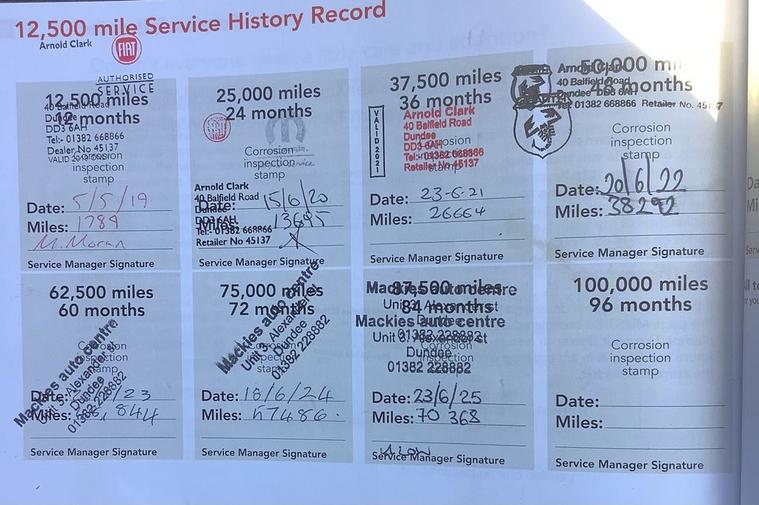 12,500 mile Service History Record
Arnold Clark
FIAT
AUTHORISED
SERVICE
12,500 miles
12 months
40 Balfield Road
Dundee
DD3 6AH
Tel:- 01382 668866
Dealer No 45137
Corrosion
inspection
stamp
Date: 5/5/19
Miles: 1789
M. Moran
Service Manager Signature
25,000 miles
24 months
Corrosion
inspection
stamp
Arnold Clark
40 Balfield Road
Dundee
DD3 6AH
Tel:- 01382 668866
Retailer No 45137
Date: 15/6/20
Miles: 13695
Service Manager Signature
37,500 miles
36 months
VALID 2021
Arnold Clark
40 Balfield Road
Dundee
DD3 6AH
Tel:- 01382 668866
Retailer No 45137
Corrosion
inspection
stamp
Date: 23-6-21
Miles: 26664
Service Manager Signature
50,000 mi
48 months
ABARTH
Arnold Clark
40 Balfield Road
Dundee DD3 6HB
Tel 01382 668866 Retailer No.
Corrosion
inspection
stamp
Date: 20/6/22
Miles: 38292
Service Manager Signature
62,500 miles
60 months
Mackies auto centre
Unit 3, Alexander st
Dundee
01382 228882
Corrosion
inspection
stamp
Date: /23
Miles: ,844
Service Manager Signature
75,000 miles
72 months
Mackies auto centre
Unit 3, Alexander st
Dundee
01382 228882
Corrosion
inspection
stamp
Date: 18/6/24
Miles: 57486.
Service Manager Signature
87,500 miles
84 months
Mackies auto centre
Unit 3, Alexander st
Dundee
01382 228882
Mackies auto centre
Unit 3, Alexander st
Dundee
01382 228882
Corrosion
inspection
stamp
Date: 23/6/25
Miles: 70 368
Service Manager Signature
100,000 miles
96 months
Corrosion
inspection
stamp
Date:
Miles:
Service Manager Signature